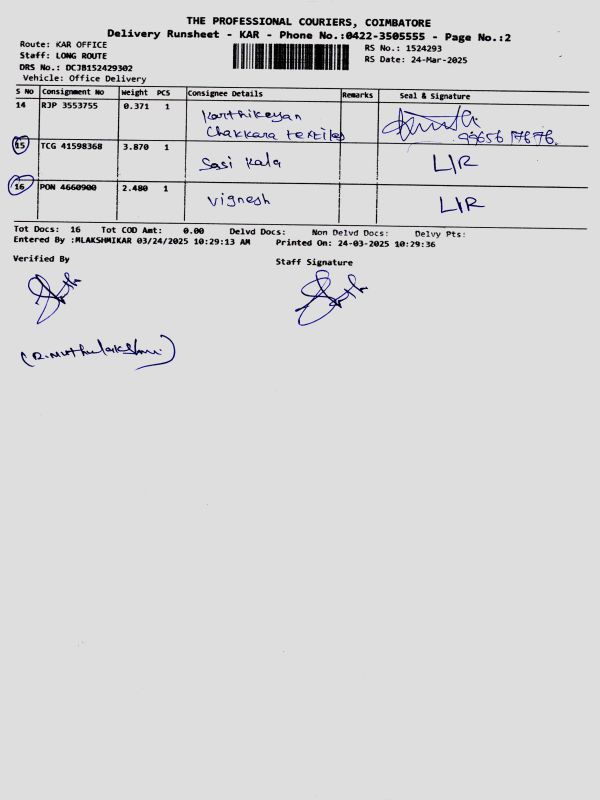 THE PROFESSIONAL COURIERS, COIMBATORE
Delivery Runsheet - KAR - Phone No.:0422-3505555 - Page No.:2
Route: KAR OFFICE
RS No.: 1524293
Staff: LONG ROUTE
RS Date: 24-Mar-2025
DRS No.: DCJB152429302
Vehicle: Office Delivery
S No Consignment No Weight PCS Consignee Details Remarks Seal & Signature
14 RJP 3553755 0.371 1 Karthikeyan
Chakkara textiles 99656 17676.
15 TCG 41598368 3.870 1 Sasi Kala L/R
16 PON 4660900 2.480 1 Vignesh L/R
Tot Docs: 16 Tot COD Amt: 0.00 Delvd Docs: Non Delvd Docs: Delvy Pts:
Entered By :MLAKSHMIKAR 03/24/2025 10:29:13 AM Printed On: 24-03-2025 10:29:36
Verified By Staff Signature
(R.Muthulakshmi)